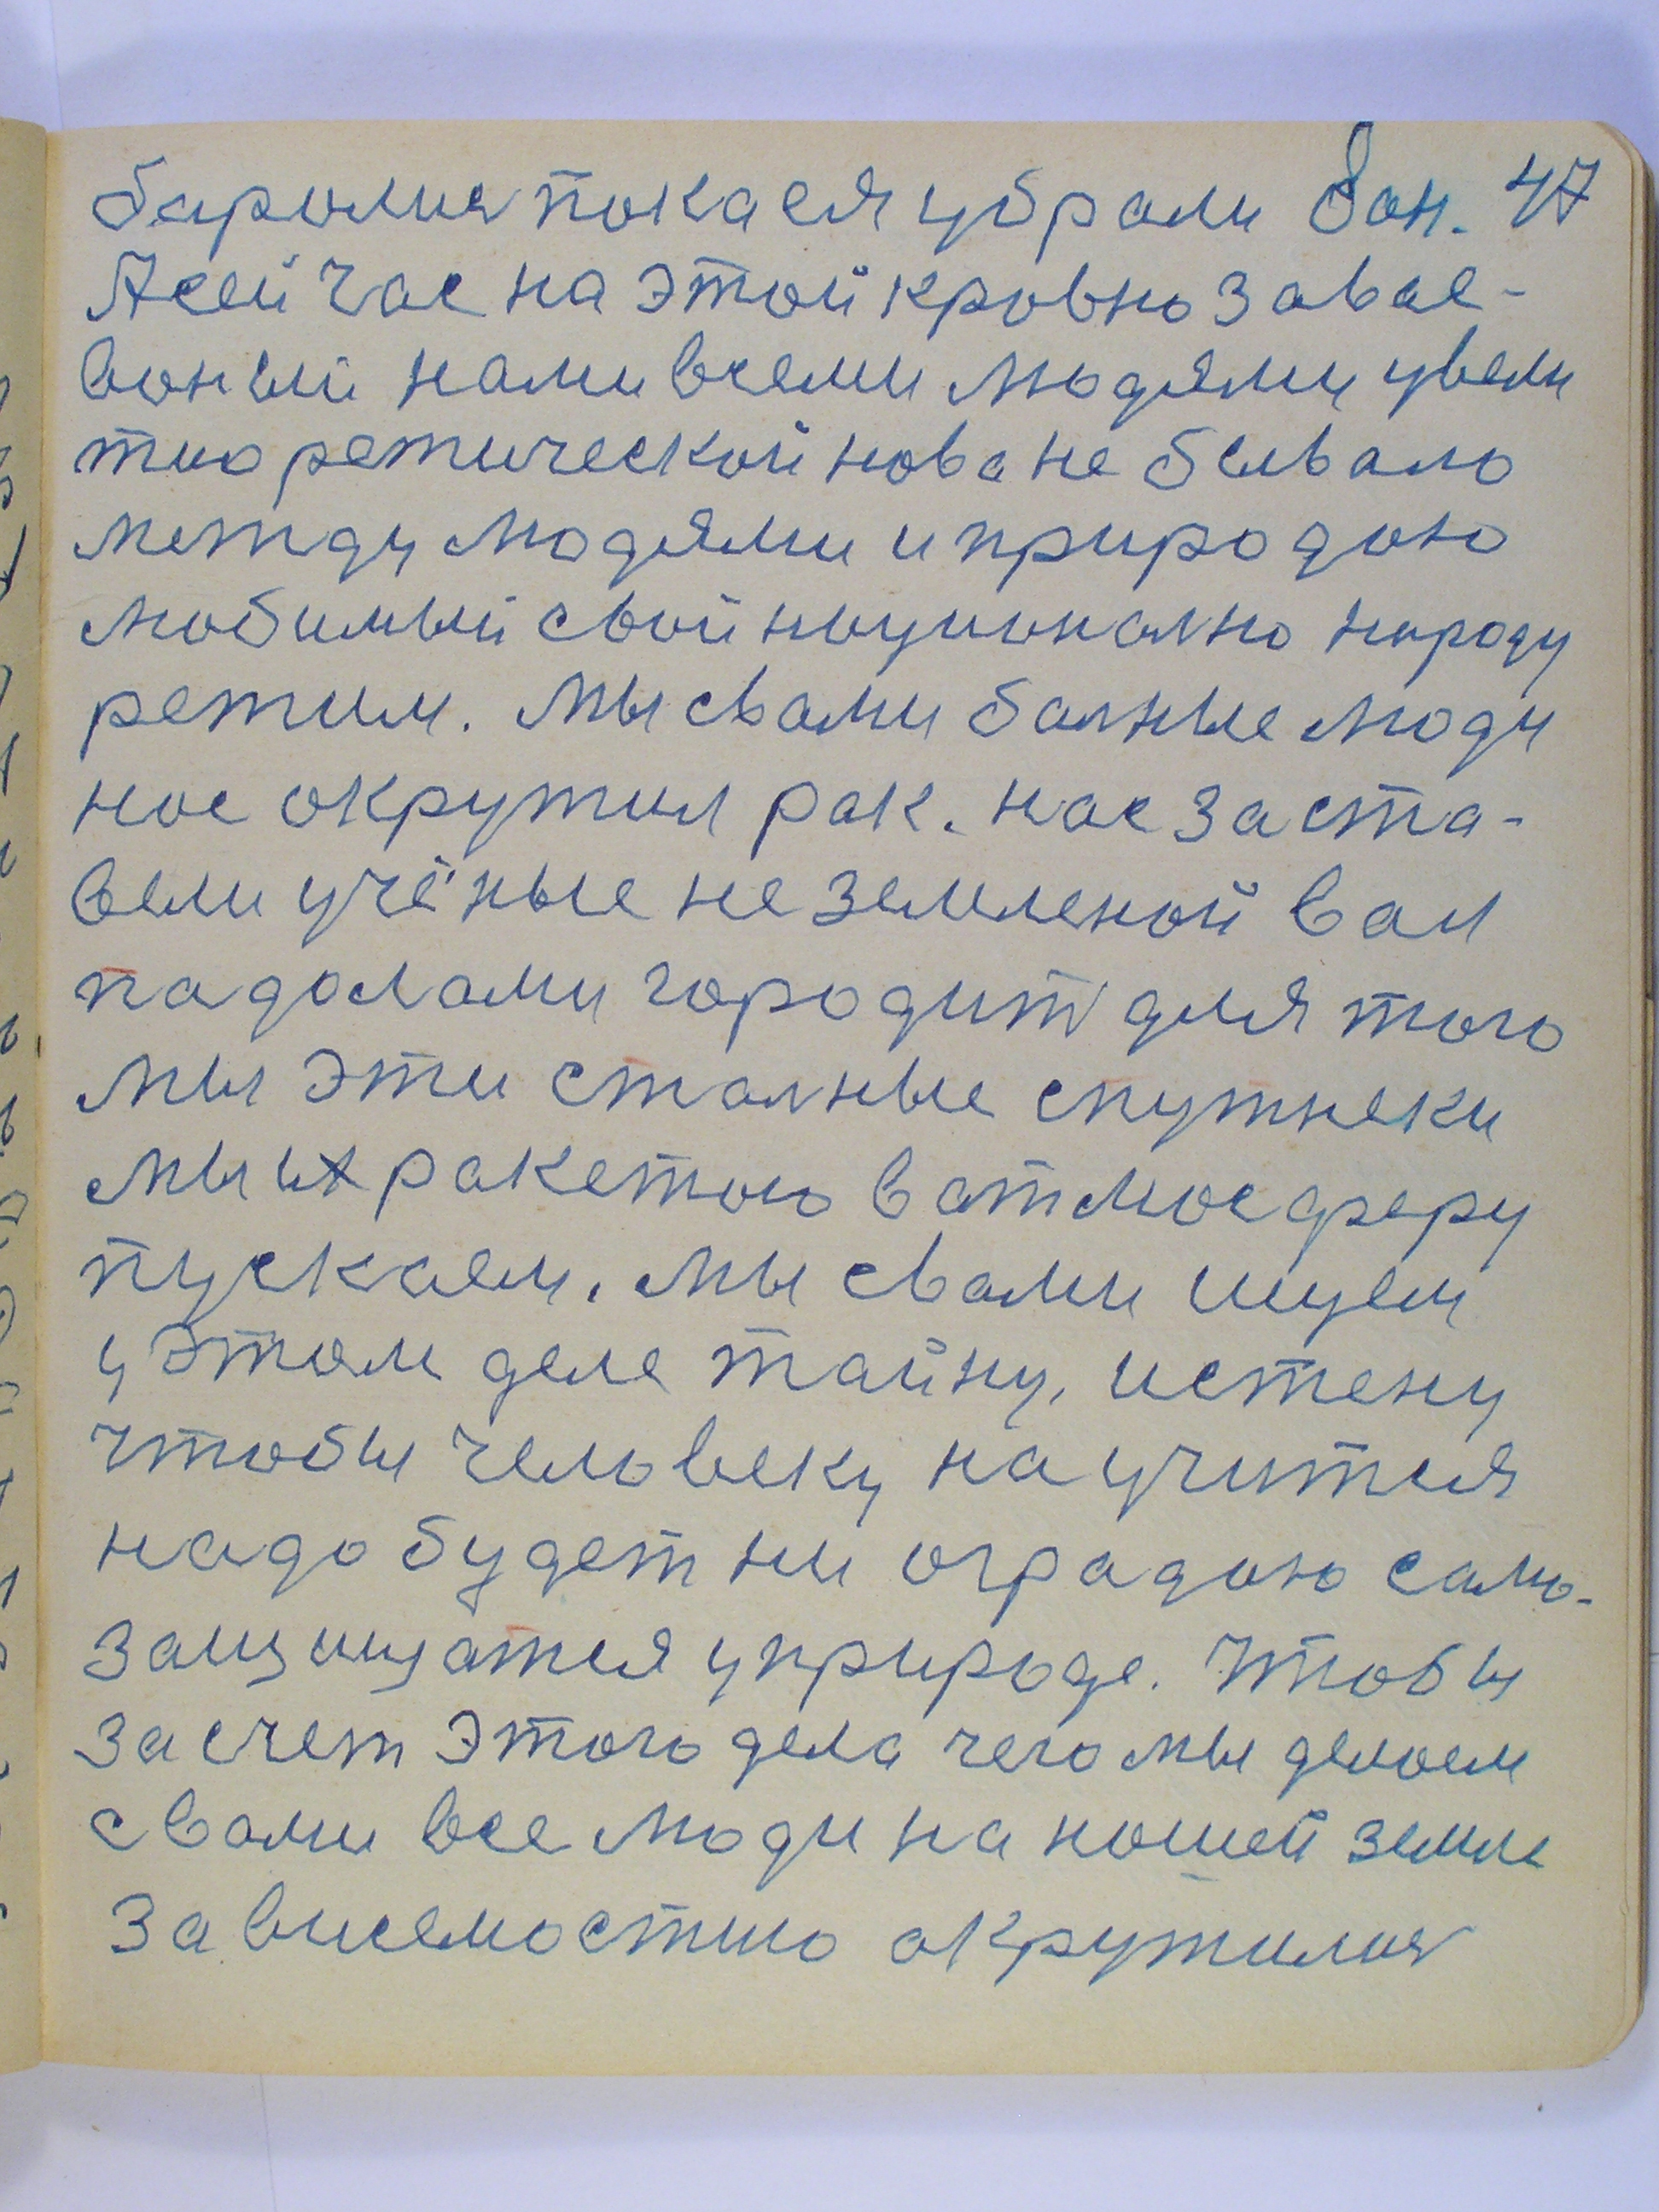 баролися пока ся убрали вон. 47
А сейчас на этой кровно завае-
воный нами всеми людями увели
тиоретической нова не бывало
между людями и природою
любимый свой национално народу
режим. Мы свами балные люди
нас окружил рак. нас заста-
вели учёные не земленой вал
падолами городит для того
мы эти сталные спутнеки
мы их ракетою ватмосферу
пускаем. мы свами ищем
у этом деле тайну, истену
чтобы человеку научится
надо будет ни оградою само-
защищатся у природе. Чтобы
за счет этого дела чего мы делоем
свами все люди на нашей земле
зависемостию окружилися